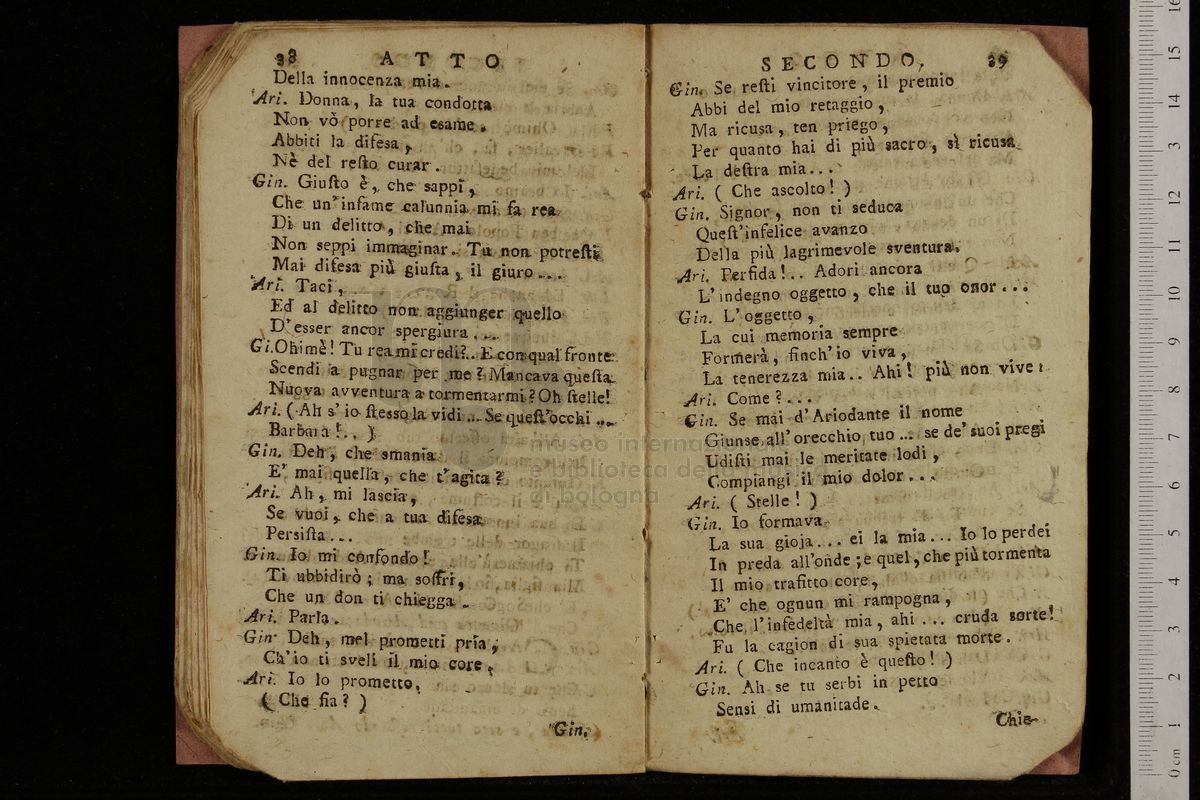 38 ATTO
Della innocenza mia.
Ari. Donna, la tua condotta
Non vò porre ad esame.
Abbiti la difesa,
Nè del resto curar.
Gin. Giusto è, che sappi,
Che un' infame calunnia mi fa rea
Di un delitto, che mai
Non seppi immaginar. Tu non potresti
Mai difesa più giusta, il giuro...
Ari. Taci,
Ed al delitto non aggiunger quello
D' esser ancor spergiura...
Gi. Ohimè! Tu rea mi credi?.. E con qual fronte
Scendi a pugnar per me? Mancava questa
Nuova avventura a tormentarmi? Oh stelle!
Ari. (Ah s' io stesso la vidi... Se quest' occhi...
Barbara!..)
Gin. Deh, che smania
E' mai quella, che t' agita?
Ari. Ah, mi lascia,
Se vuoi, che a tua difesa
Persista...
Gin. Io mi confondo!
Ti ubbidirò; ma soffri,
Che un don ti chiegga.
Ari. Parla.
Gin. Deh, mel prometti pria,
Ch'io ti sveli il mio core.
Ari. Io lo prometto.
(Che fia?)
Gin.
SECONDO. 39
Gin. Se resti vincitore, il premio
Abbi del mio retaggio,
Ma ricusa, ten priego,
Per quanto hai di più sacro, sì ricusa
La destra mia...
Ari. (Che ascolto!)
Gin. Signor, non ti seduca
Quest'infelice avanzo
Della più lagrimevole sventura.
Ari. Perfida!.. Adori ancora
L'indegno oggetto, che il tuo onor...
Gin. L'oggetto,
La cui memoria sempre
Formerà, finch'io viva,
La tenerezza mia.. Ahi! più non vive
Ari. Come?...
Gin. Se mai d'Ariodante il nome
Giunse all'orecchio tuo... se de' suoi pregi
Udisti mai le meritate lodi,
Compiangi il mio dolor...
Ari. (Stelle!)
Gin. Io formava
La sua gioja... ei la mia... Io lo perdei
In preda all'onde; e quel, che più tormenta
Il mio trafitto core,
E' che ognun mi rampogna,
Che l'infedeltà mia, ahi... cruda sorte!
Fu la cagion di sua spietata morte.
Ari. (Che incanto è questo!)
Gin. Ah se tu serbi in petto
Sensi di umanitade.
Chie-
museo internazionale
e biblioteca della musica
di bologna
0 cm 1 2 3 4 5 6 7 8 9 10 11 12 13 14 15 16